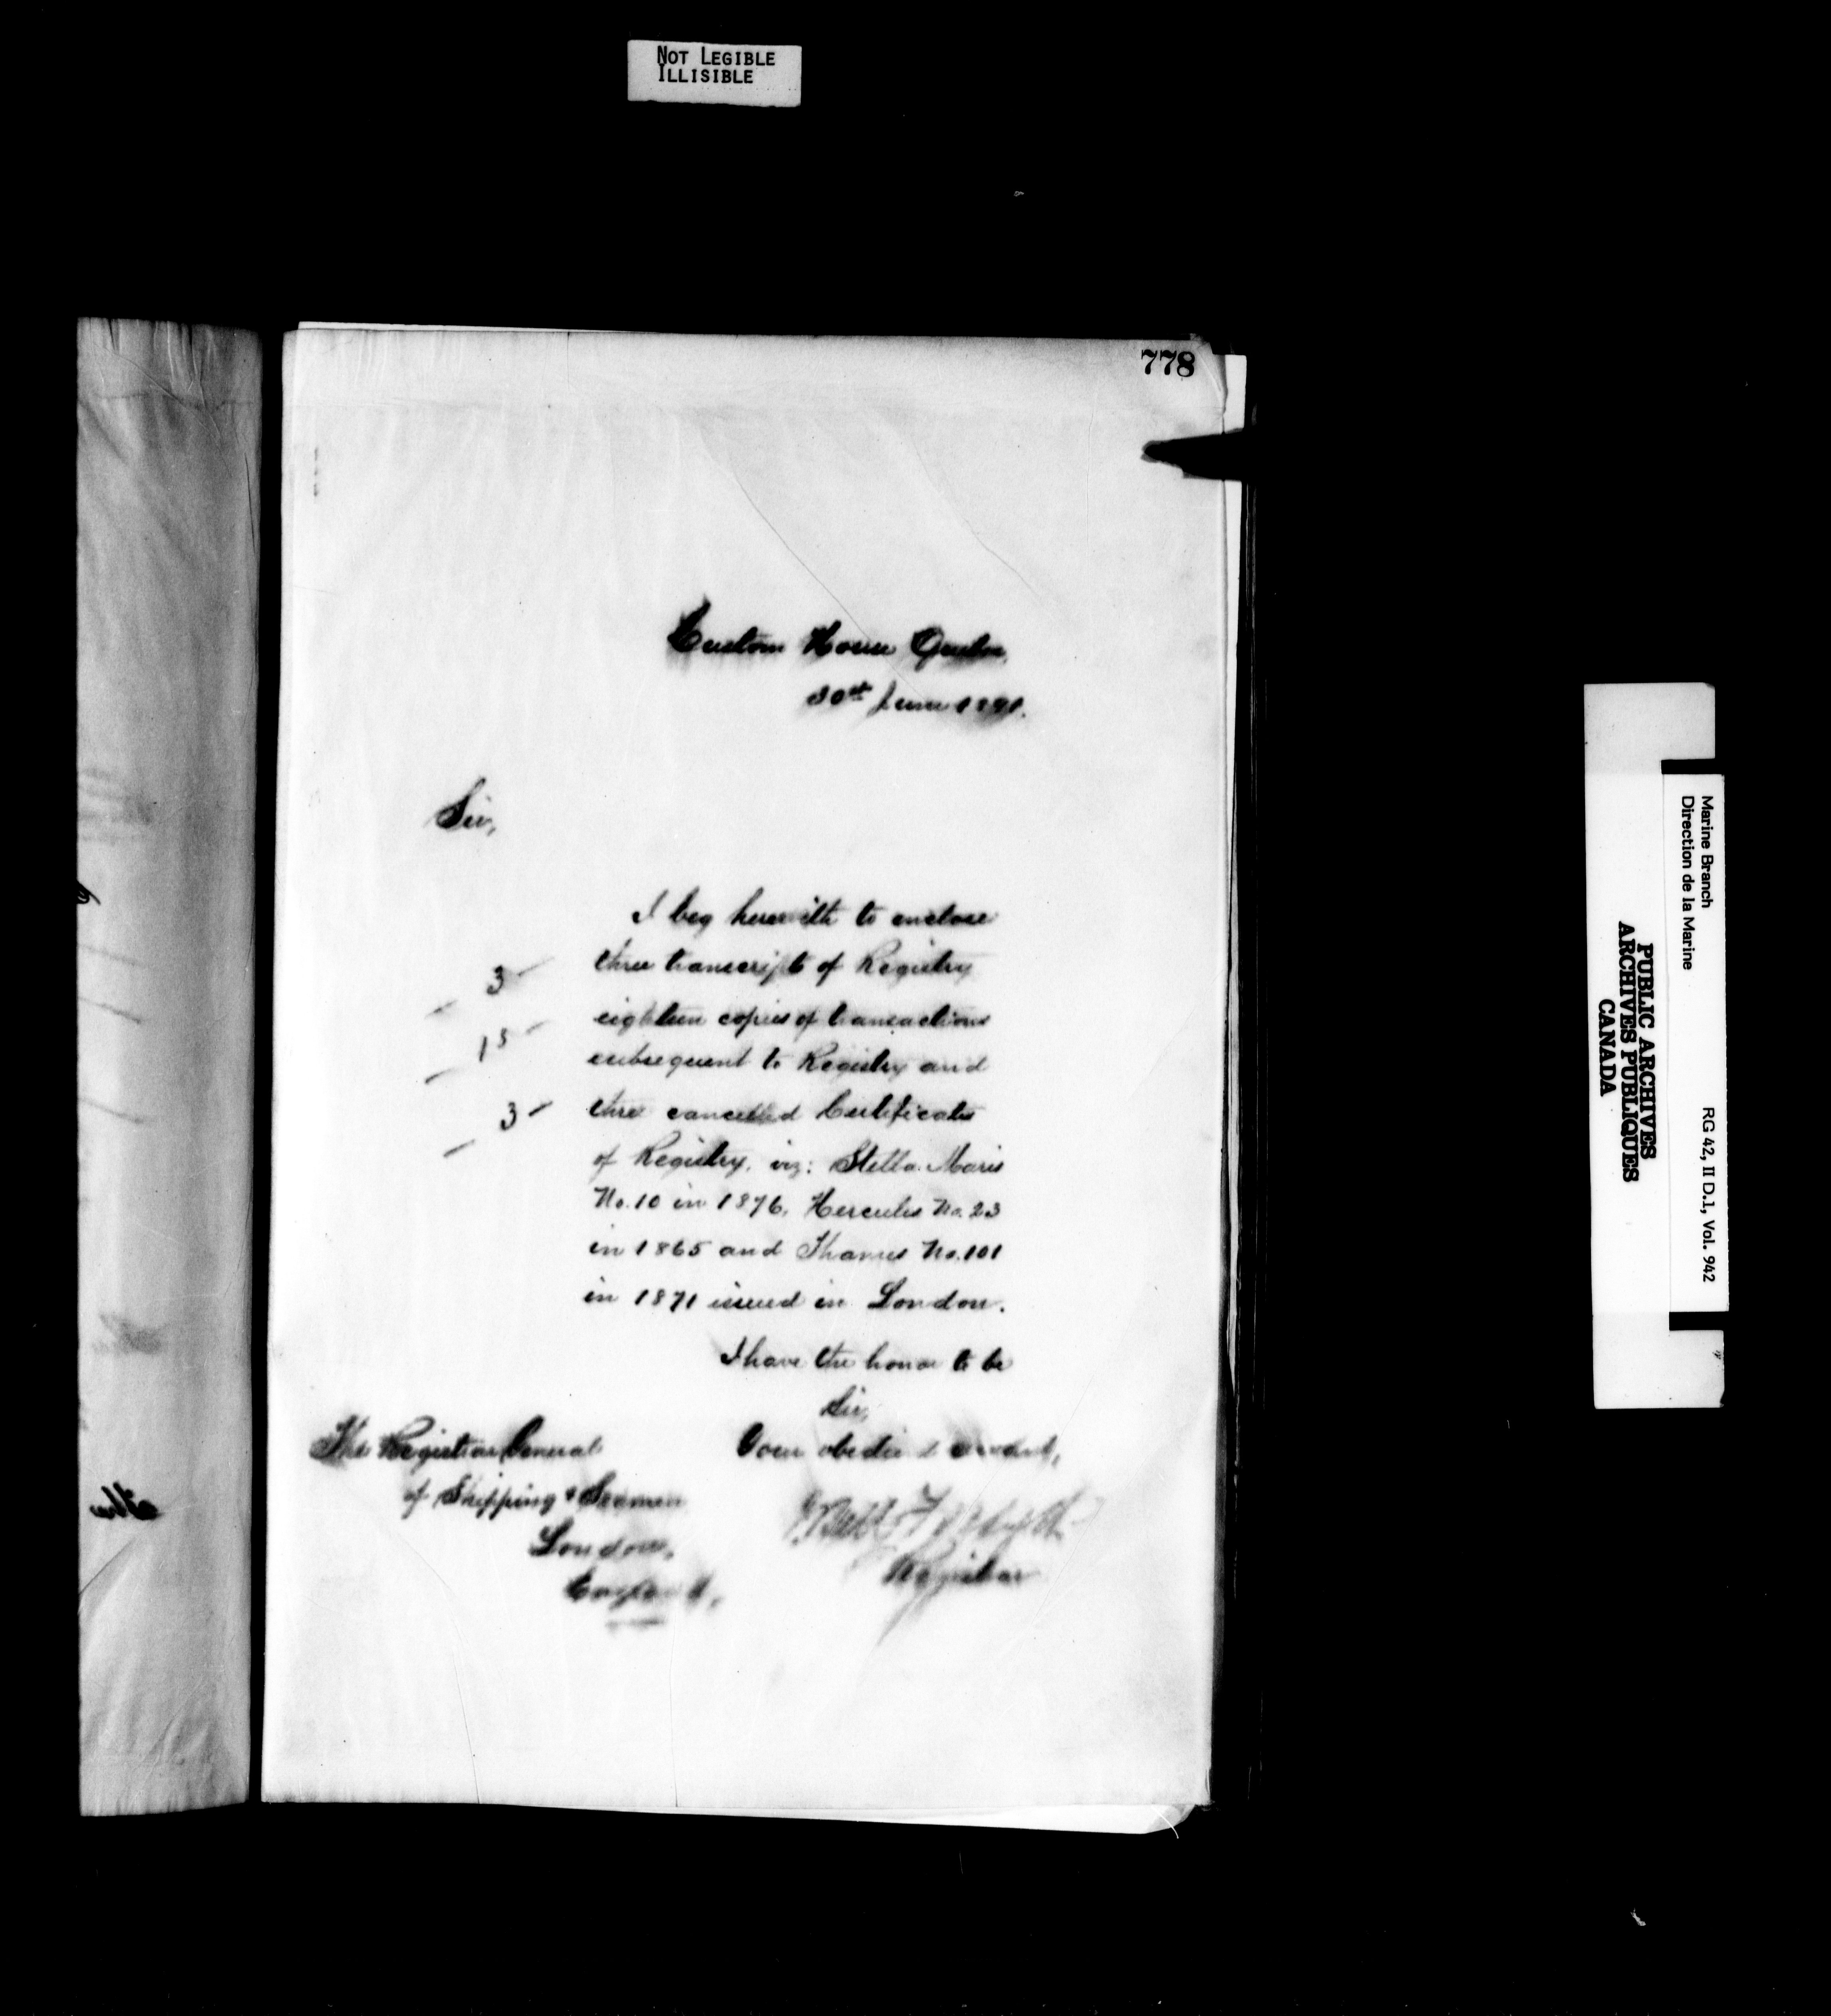 NOT LEGIBLE
ILLISIBLE
778
Custom House Quebec,
30th June 1891.
Sir,
I beg herewith to enclose
3 three transcripts of Registry
eighteen copies of transactions
subsequent to Registry and
3 three cancelled Certificates
of Registry, viz: Stella Maris
No. 10 in 1876, Hercules No. 23
in 1865 and Thames No. 101
in 1871 issued in London.
I have the honor to be
Sir,
Your obedient servant,
Forsyth
Registrar
The Registrar General
of Shipping & Seamen
London,
England,
Marine Branch
Direction de la Marine
RG 42, II D.1, Vol. 942
PUBLIC ARCHIVES
ARCHIVES PUBLIQUES
CANADA